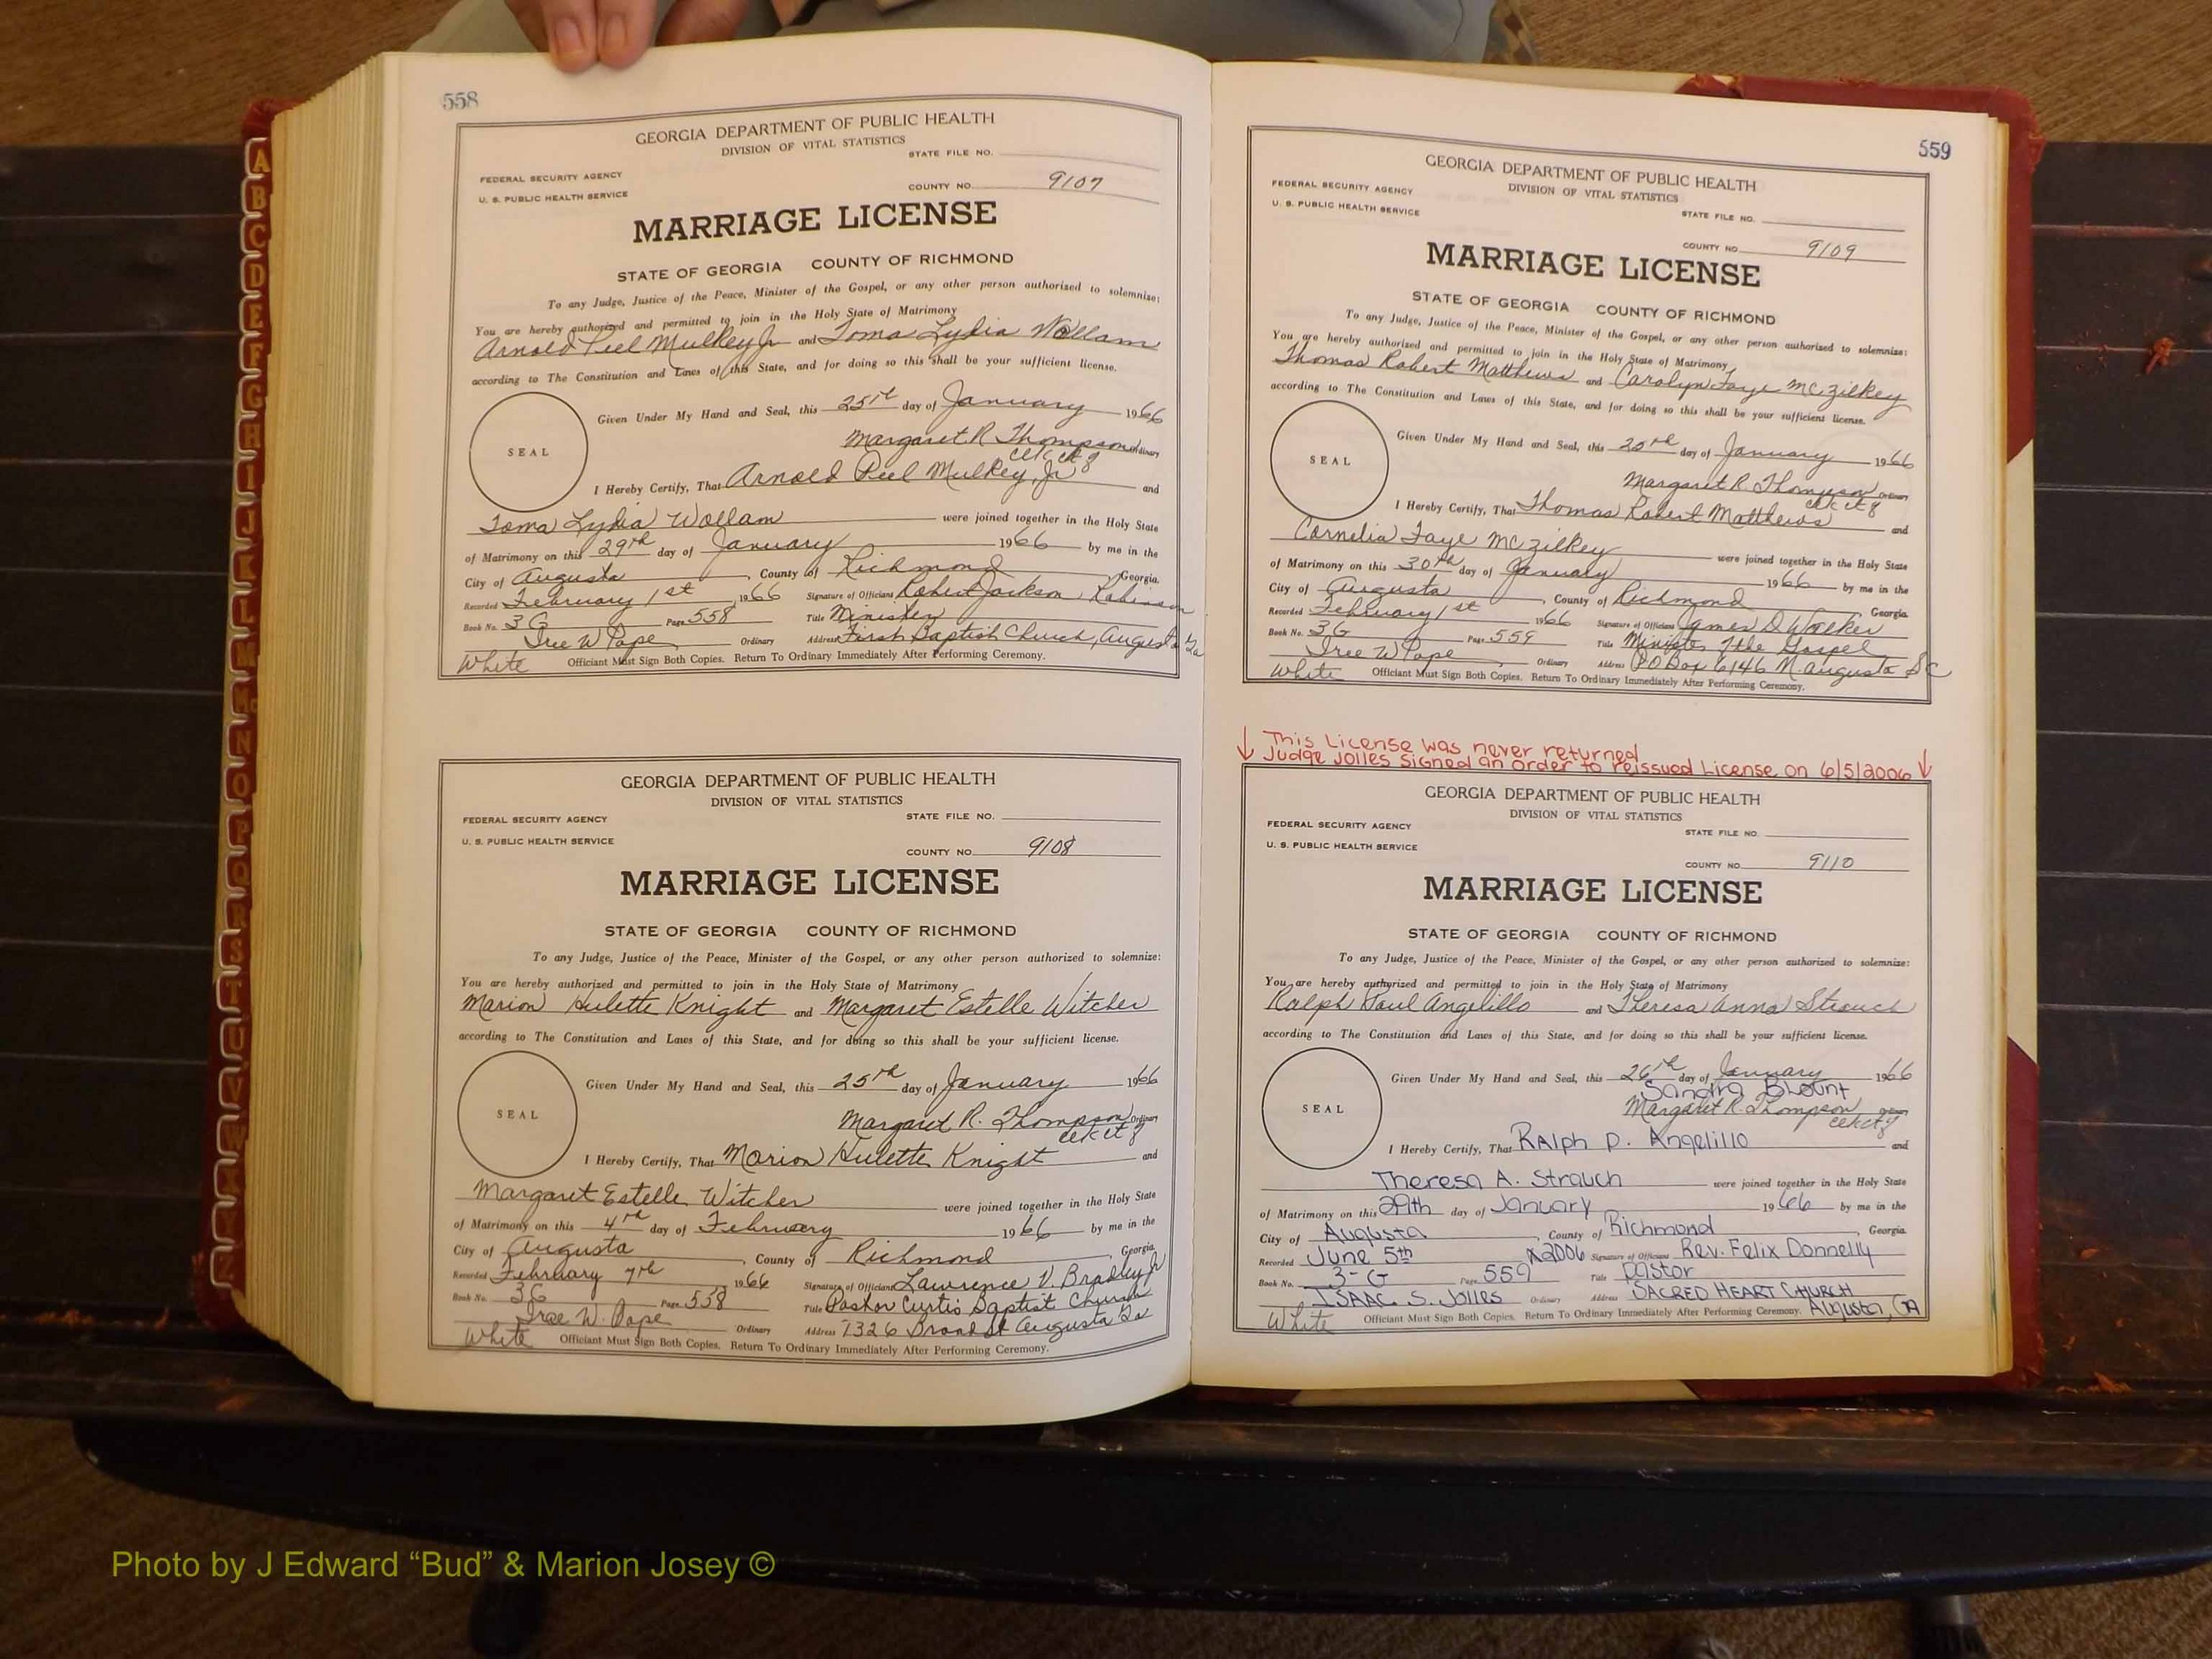 558
GEORGIA DEPARTMENT OF PUBLIC HEALTH
DIVISION OF VITAL STATISTICS
STATE FILE NO.
FEDERAL SECURITY AGENCY
U. S. PUBLIC HEALTH SERVICE
COUNTY NO. 9107
MARRIAGE LICENSE
STATE OF GEORGIA COUNTY OF RICHMOND
To any Judge, Justice of the Peace, Minister of the Gospel, or any other person authorized to solemnize:
You are hereby authorized and permitted to join in the Holy State of Matrimony
Arnold Peel Mulkey Jr and Toma Lydia Wollam
according to The Constitution and Laws of this State, and for doing so this shall be your sufficient license.
SEAL
Given Under My Hand and Seal, this 25th day of January 1966
Margaret R. Thompson Ordinary
I Hereby Certify, That Arnold Peel Mulkey, Jr and
Toma Lydia Wollam were joined together in the Holy State
of Matrimony on this 29th day of January 1966 by me in the
City of Augusta, County of Richmond, Georgia.
Recorded February 1st 1966 Signature of Officiant Robert Jackson Robinson
Book No. 3G Page 558 Title Minister
Iree W Pope Ordinary Address First Baptist Church, Augusta Ga
White Officiant Must Sign Both Copies. Return To Ordinary Immediately After Performing Ceremony.
GEORGIA DEPARTMENT OF PUBLIC HEALTH
DIVISION OF VITAL STATISTICS
STATE FILE NO.
FEDERAL SECURITY AGENCY
U. S. PUBLIC HEALTH SERVICE
COUNTY NO. 9108
MARRIAGE LICENSE
STATE OF GEORGIA COUNTY OF RICHMOND
To any Judge, Justice of the Peace, Minister of the Gospel, or any other person authorized to solemnize:
You are hereby authorized and permitted to join in the Holy State of Matrimony
Marion Hulette Knight and Margaret Estelle Witcher
according to The Constitution and Laws of this State, and for doing so this shall be your sufficient license.
SEAL
Given Under My Hand and Seal, this 25th day of January 1966
Margaret R. Thompson Ordinary
I Hereby Certify, That Marion Hulette Knight and
Margaret Estelle Witcher were joined together in the Holy State
of Matrimony on this 4th day of February 1966 by me in the
City of Augusta, County of Richmond, Georgia
Recorded February 7th 1966 Signature of Officiant Lawrence V. Bradley Jr
Book No. 3G Page 558 Title Pastor Curtis Baptist Church
Iree W. Pope Ordinary Address 1326 Broad St Augusta Ga
White Officiant Must Sign Both Copies. Return To Ordinary Immediately After Performing Ceremony.
559
GEORGIA DEPARTMENT OF PUBLIC HEALTH
DIVISION OF VITAL STATISTICS
FEDERAL SECURITY AGENCY
U. S. PUBLIC HEALTH SERVICE
STATE FILE NO.
COUNTY NO. 9109
MARRIAGE LICENSE
STATE OF GEORGIA COUNTY OF RICHMOND
To any Judge, Justice of the Peace, Minister of the Gospel, or any other person authorized to solemnize:
You are hereby authorized and permitted to join in the Holy State of Matrimony
Thomas Robert Matthews and Carolyn Faye McZilkey
according to The Constitution and Laws of this State, and for doing so this shall be your sufficient license.
SEAL
Given Under My Hand and Seal, this 25th day of January 1966
Margaret R. Thompson Ordinary
I Hereby Certify, That Thomas Robert Matthews and
Cornelia Faye McZilkey were joined together in the Holy State
of Matrimony on this 30th day of January 1966 by me in the
City of Augusta, County of Richmond, Georgia.
Recorded February 1st 1966 Signature of Officiant James D Walker
Book No. 3G Page 559 Title Minister of the Gospel
Iree W Pope Ordinary Address PO Box 6146 N. Augusta SC
White Officiant Must Sign Both Copies. Return To Ordinary Immediately After Performing Ceremony.
↓ This License was never returned
Judge Jolles signed an order to reissued License on 6/5/2006 ↓
GEORGIA DEPARTMENT OF PUBLIC HEALTH
DIVISION OF VITAL STATISTICS
FEDERAL SECURITY AGENCY
STATE FILE NO.
U. S. PUBLIC HEALTH SERVICE
COUNTY NO. 9110
MARRIAGE LICENSE
STATE OF GEORGIA COUNTY OF RICHMOND
To any Judge, Justice of the Peace, Minister of the Gospel, or any other person authorized to solemnize:
You are hereby authorized and permitted to join in the Holy State of Matrimony
Ralph Paul Angelillo and Theresa Anna Strauch
according to The Constitution and Laws of this State, and for doing so this shall be your sufficient license.
SEAL
Given Under My Hand and Seal, this 26th day of January 1966
Sandra Blount
Margaret R. Thompson Ordinary
I Hereby Certify, That Ralph P. Angelillo and
Theresa A. Strauch were joined together in the Holy State
of Matrimony on this 29th day of January 1966 by me in the
City of Augusta, County of Richmond, Georgia
Recorded June 5th 2006 Signature of Officiant Rev. Felix Donnelly
Book No. 3-G Page 559 Title Pastor
ISAAC S. Jolles Ordinary Address SACRED HEART CHURCH
White Officiant Must Sign Both Copies. Return To Ordinary Immediately After Performing Ceremony. Augusta, GA
A
B
C
D
E
F
G
H
I
J
K
L
M
Mc
N
O
P
Q
R
S
T
U
V
W
X
Y
Z
Photo by J Edward “Bud” & Marion Josey ©